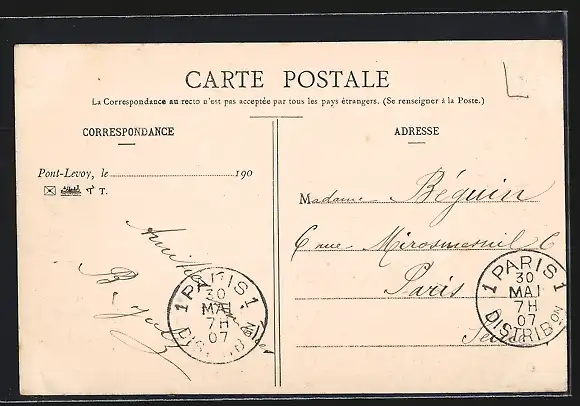 CARTE POSTALE
La Correspondance au recto n'est pas acceptée par tous les pays étrangers. (Se renseigner à la Poste.)
CORRESPONDANCE
Pont-Levoy, le 190
T.
PARIS 1
30
MAI
7H
07
DISTRIBON
ADRESSE
Madame Béguin
6 rue Miromesnil 6
Paris
Seine
1 PARIS 1
30
MAI
7H
07
DISTRIBON